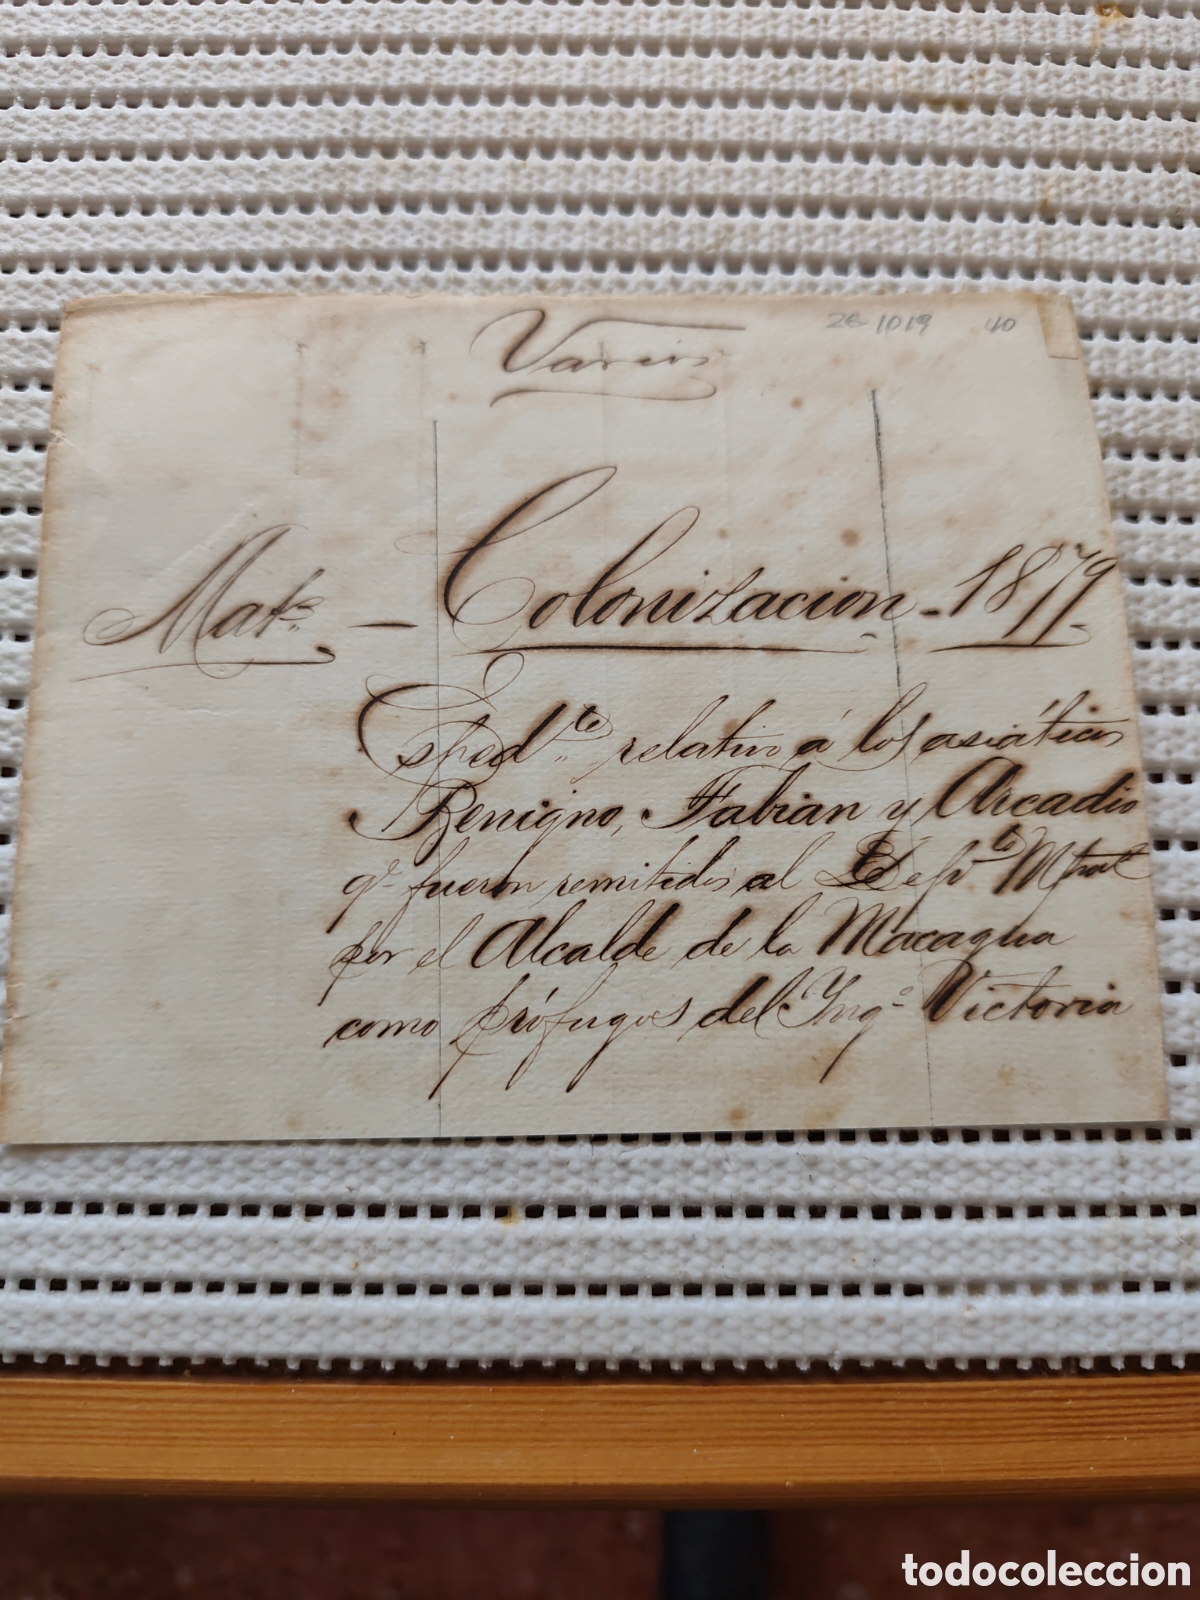 Varios
26-1019 40
Mats. - Colonizacion - 1879.
Espedte. relativo á los asiáticos
Benigno, Fabian y Arcadio
qe. fueron remitidos al Depto. Mpal
por el Alcalde de la Macagua
como prófugos del Ingo. Victoria
todocoleccion